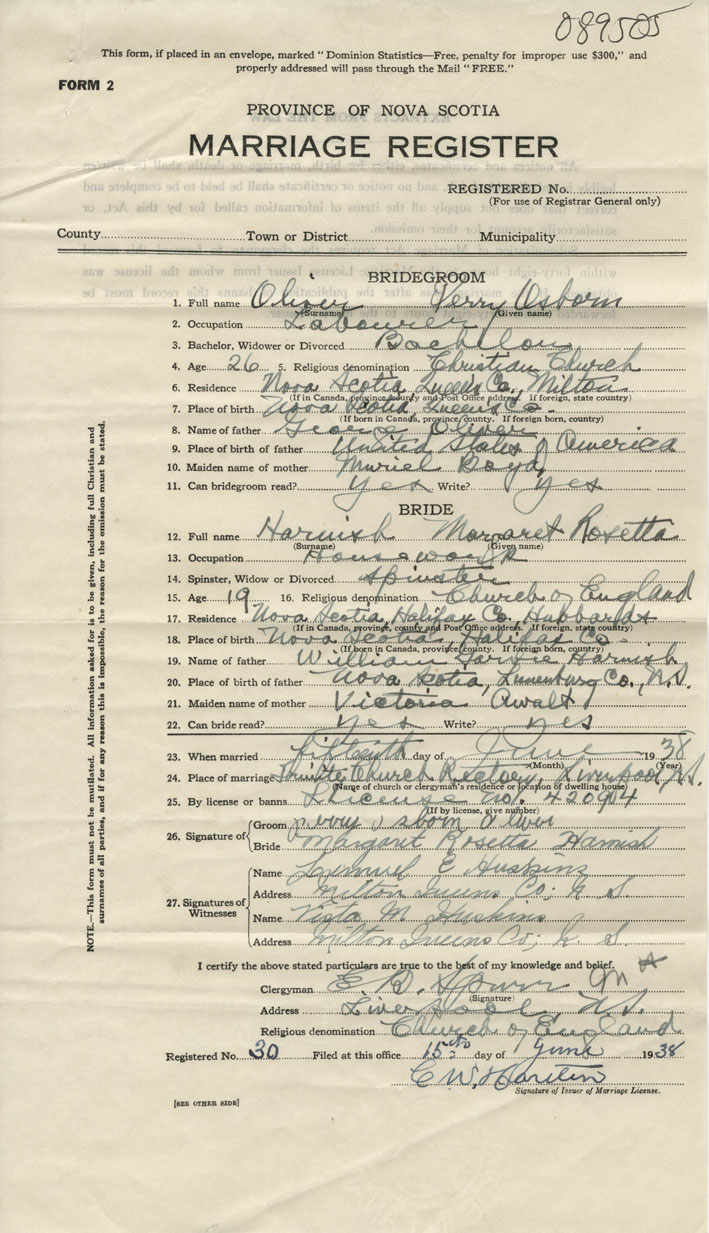 089505
This form, if placed in an envelope, marked “Dominion Statistics—Free, penalty for improper use $300,” and
properly addressed will pass through the Mail “FREE.”
FORM 2
PROVINCE OF NOVA SCOTIA
MARRIAGE REGISTER
REGISTERED No.
(For use of Registrar General only)
County Town or District Municipality
BRIDEGROOM
1. Full name Oliver Perry Osborn
(Surname) (Given name)
2. Occupation Labourer
3. Bachelor, Widower or Divorced Bachelor
4. Age 26 5. Religious denomination Christian Church
6. Residence Nova Scotia, Queens Co., Milton
(If in Canada, province, county and Post Office address. If foreign, state country)
7. Place of birth Nova Scotia, Queens Co.
(If born in Canada, province, county. If foreign born, country)
8. Name of father George Oliver
9. Place of birth of father United States of America
10. Maiden name of mother Muriel Boyd
11. Can bridegroom read? yes Write? yes
BRIDE
12. Full name Harnish Margaret Rosetta
(Surname) (Given name)
13. Occupation Housework
14. Spinster, Widow or Divorced Spinster
15. Age 19 16. Religious denomination Church of England
17. Residence Nova Scotia, Halifax Co., Hubbards
(If in Canada, province, county and Post Office address. If foreign, state country)
18. Place of birth Nova Scotia, Halifax Co.
(If born in Canada, province, county. If foreign born, country)
19. Name of father William Harnish
20. Place of birth of father Nova Scotia, Lunenburg Co., N.S.
21. Maiden name of mother Victoria Awalt
22. Can bride read? yes Write? yes
23. When married fifteenth day of June 1938
(Month) (Year)
24. Place of marriage Trinity Church Rectory, Liverpool, N.S.
(Name of church or clergyman's residence or location of dwelling house)
25. By license or banns License no. 420904
(If by license, give number)
26. Signature of Groom Perry Osborn Oliver
Bride Margaret Rosetta Harnish
27. Signatures of Witnesses
Name Lemuel E Huskins
Address Milton Queens Co; N. S.
Name Vista M. Huskins
Address Milton Queens Co; N. S.
I certify the above stated particulars are true to the best of my knowledge and belief.
Clergyman E. B. Spurr M A
(Signature)
Address Liverpool, N.S.
Religious denomination Church of England
Registered No. 30 Filed at this office 15th day of June 1938
C W
Signature of Issuer of Marriage License.
[SEE OTHER SIDE]
NOTE.—This form must not be mutilated. All information asked for is to be given, including full Christian and
surnames of all parties, and if for any reason this is impossible, the reason for the omission must be stated.